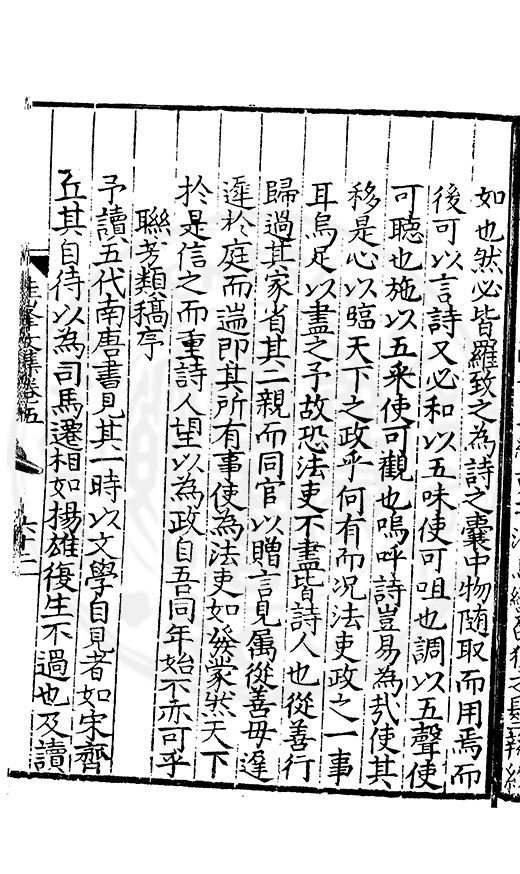 如也然必皆羅致之為詩之囊中物随取而用焉而
後可以言詩又必和以五味使可咀也調以五聲使
可聽也施以五采使可觀也嗚呼詩豈易為㢤使其
移是心以臨天下之政乎何有而况法吏政之一事
耳烏足以盡之予故恐法吏不盡皆詩人也從善行
歸過其家省其二親而同官以贈言見属從善毋遽
遲於庭而耑即其所有事使為法吏如發蒙然天下
於是信之而重詩人望以為政自吾同年始不亦可乎
聯芳類稿序
予讀五代南唐書見其一時以文學自見者如宋齊
丘其自待以為司馬遷相如揚雄復生不過也及讀
集卷五
六十二